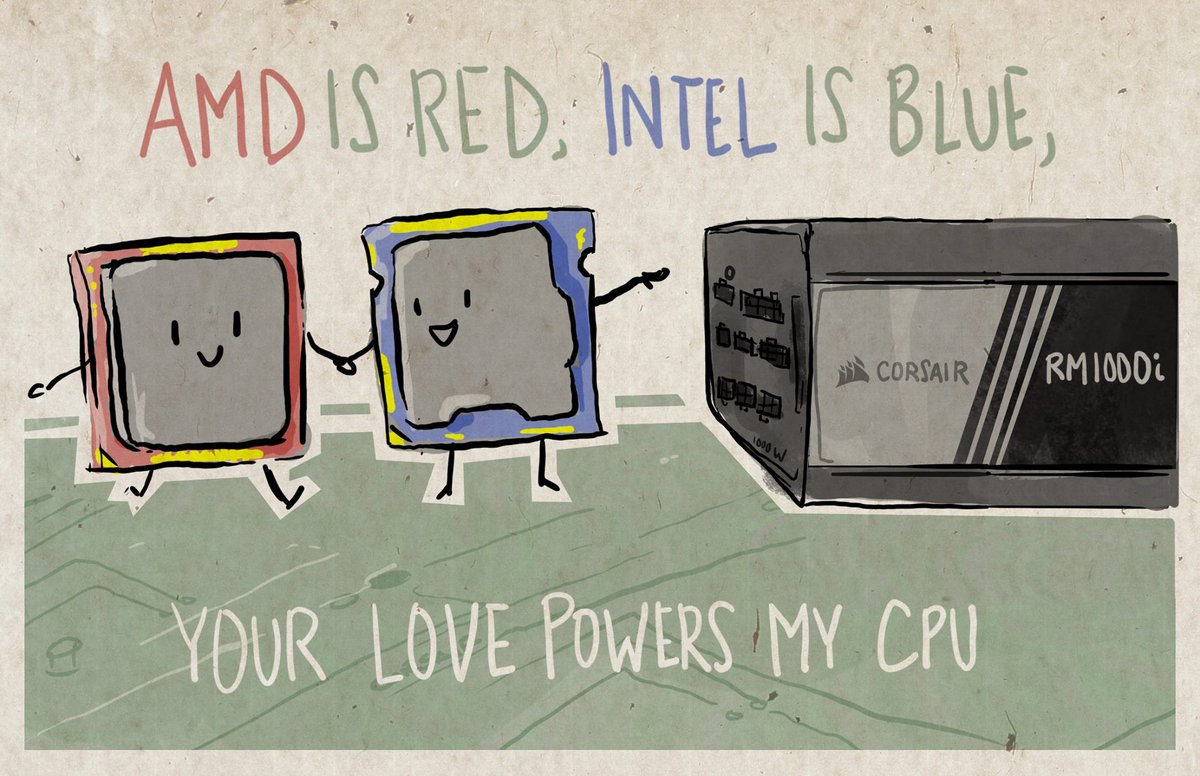 AMD IS RED, INTEL IS BLUE,
CORSAIR
RM1000i
1000W
YOUR LOVE POWERS MY CPU